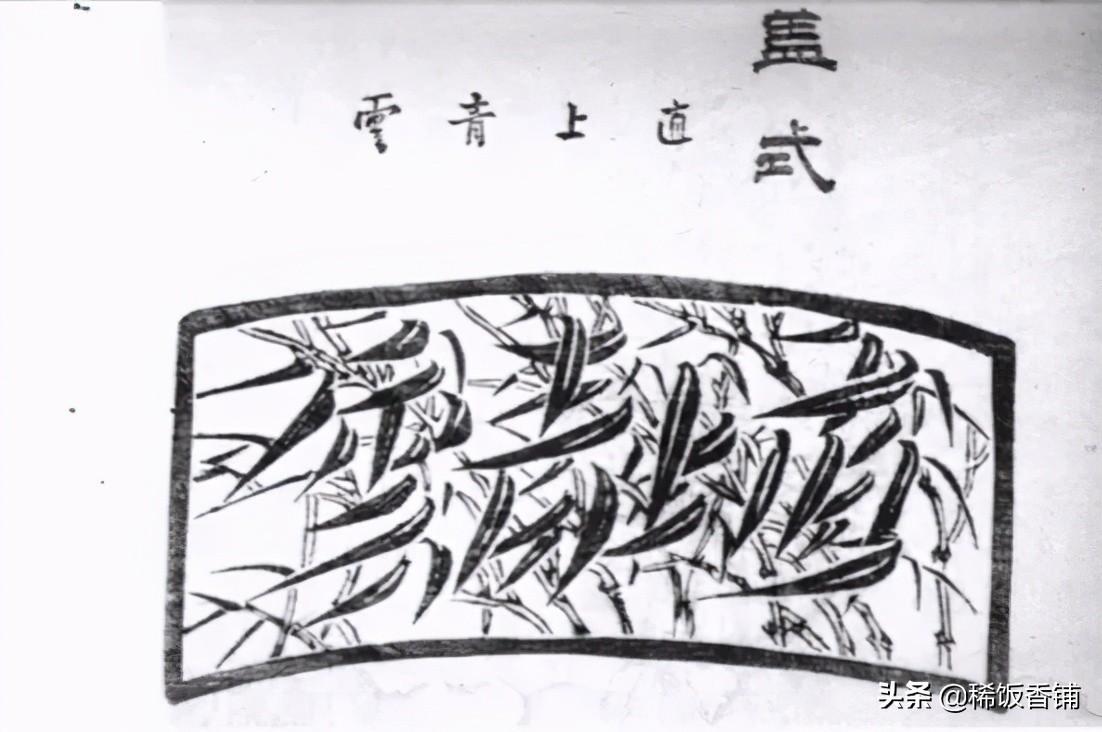 盖式
直上青雲
头条 @稀饭香铺